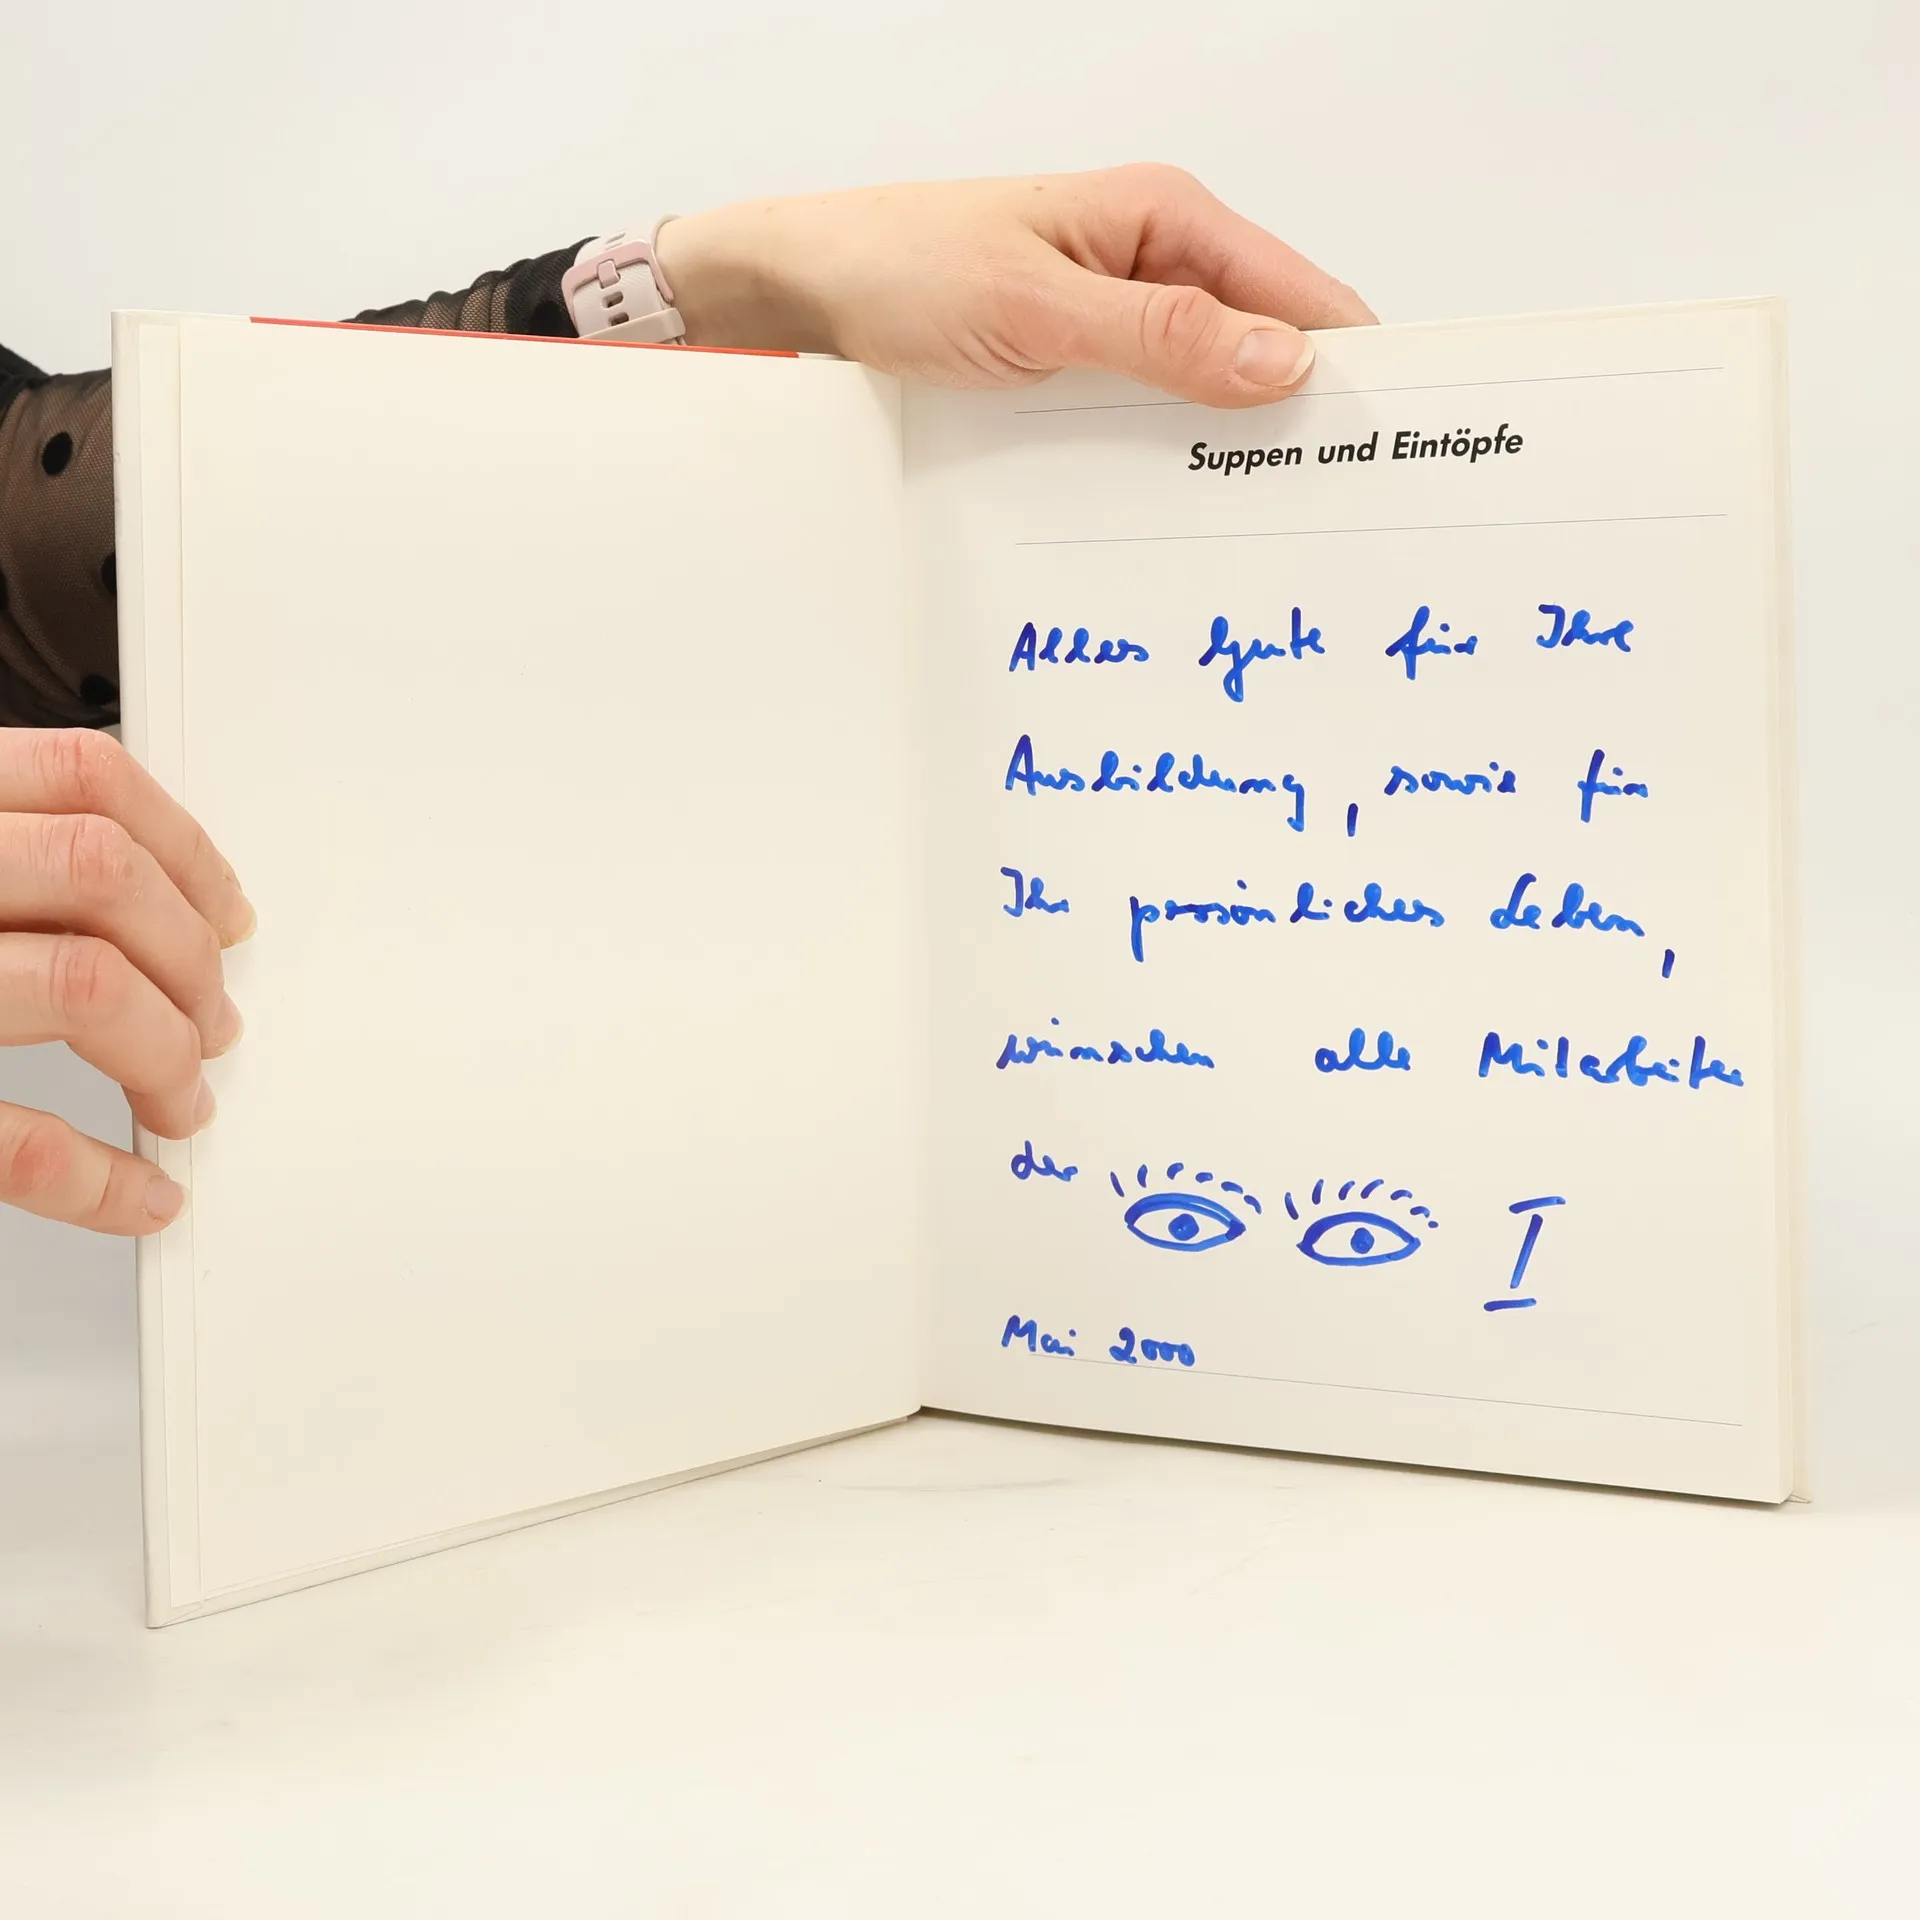 Suppen und Eintöpfe
Alles Gute für Ihre
Ausbildung, sowie für
Ihr persönliches Leben,
wünschen alle Mitarbeiter
der I
Mai 2000